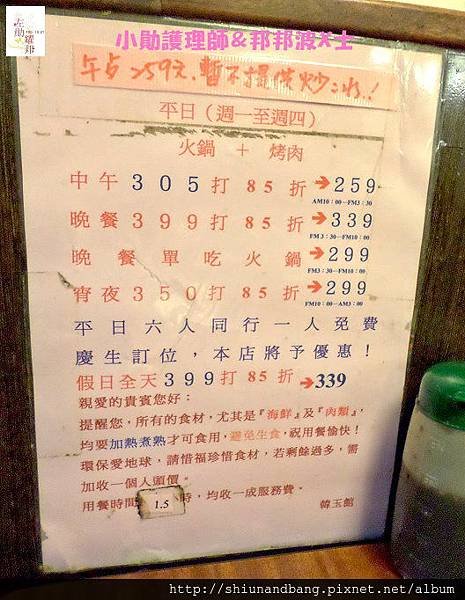 小勛護理師&邦邦波X士
午占259元.暫不提供炒冰.!
平日（週一至週四）
火鍋 + 烤肉
中午305打85折➔259
AM10：00—PM3：30
晚餐399打85折➔339
FM3：30—FM10：00
晚餐單吃火鍋➔299
FM3：30—FM10：00
宵夜350打85折➔299
FM10：00—AM3：00
平日六人同行一人免費
慶生訂位，本店將予優惠！
假日全天399打85折➔339
親愛的貴賓您好：
提醒您，所有的食材，尤其是『海鮮』及『肉類』，
均要加熱煮熟才可食用，避免生食，祝用餐愉快！
環保愛地球，請惜福珍惜食材，若剩餘過多，需
加收一個人頭價。
用餐時間 1.5 時，均收一成服務費。
韓玉館
http://shiunandbang.pixnet.net/album